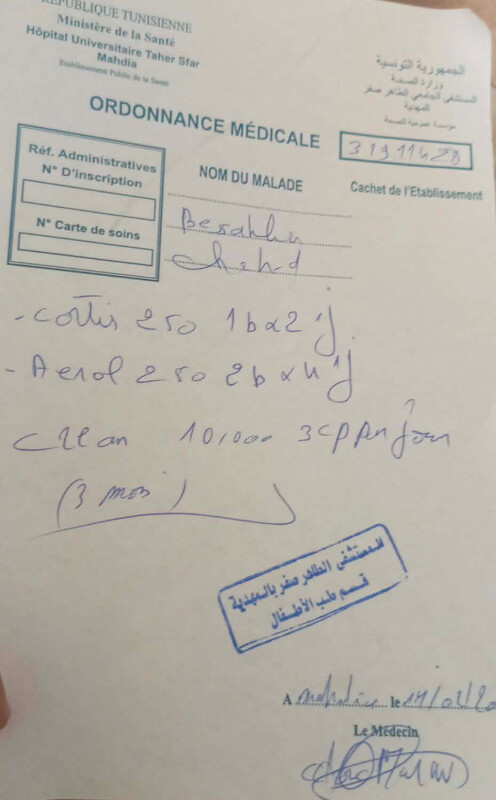 RÉPUBLIQUE TUNISIENNE
Ministère de la Santé
Hôpital Universitaire Taher Sfar
Mahdia
Etablissement Public de la Santé
الجمهورية التونسية
وزارة الصحة
المستشفى الجامعي الطاهر صفر
المهدية
مؤسسة عمومية للصحة
ORDONNANCE MÉDICALE
Réf. Administratives
N° D'inscription
N° Carte de soins
NOM DU MALADE
Cachet de l'Etablissement
- cortis 250 1b x 2 /j
- Aerol 250 2b x 4 /j
10,000 3cp par jour
(3 mois)
المستشفى الطاهر صفر بالمهدية
قسم طب الأطفال
A mahdia le
Le Médecin